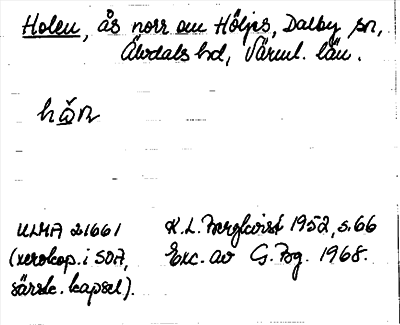 Holen, ås norr om Höljes, Dalby sn,
Älvdals hd, Värml. län.
hå̀n
ULMA 21661
(xerokop. i SOA,
särsk. kapsel).
K. L. Bergkvist 1952, s. 66
Exc. av G. Bg. 1968.